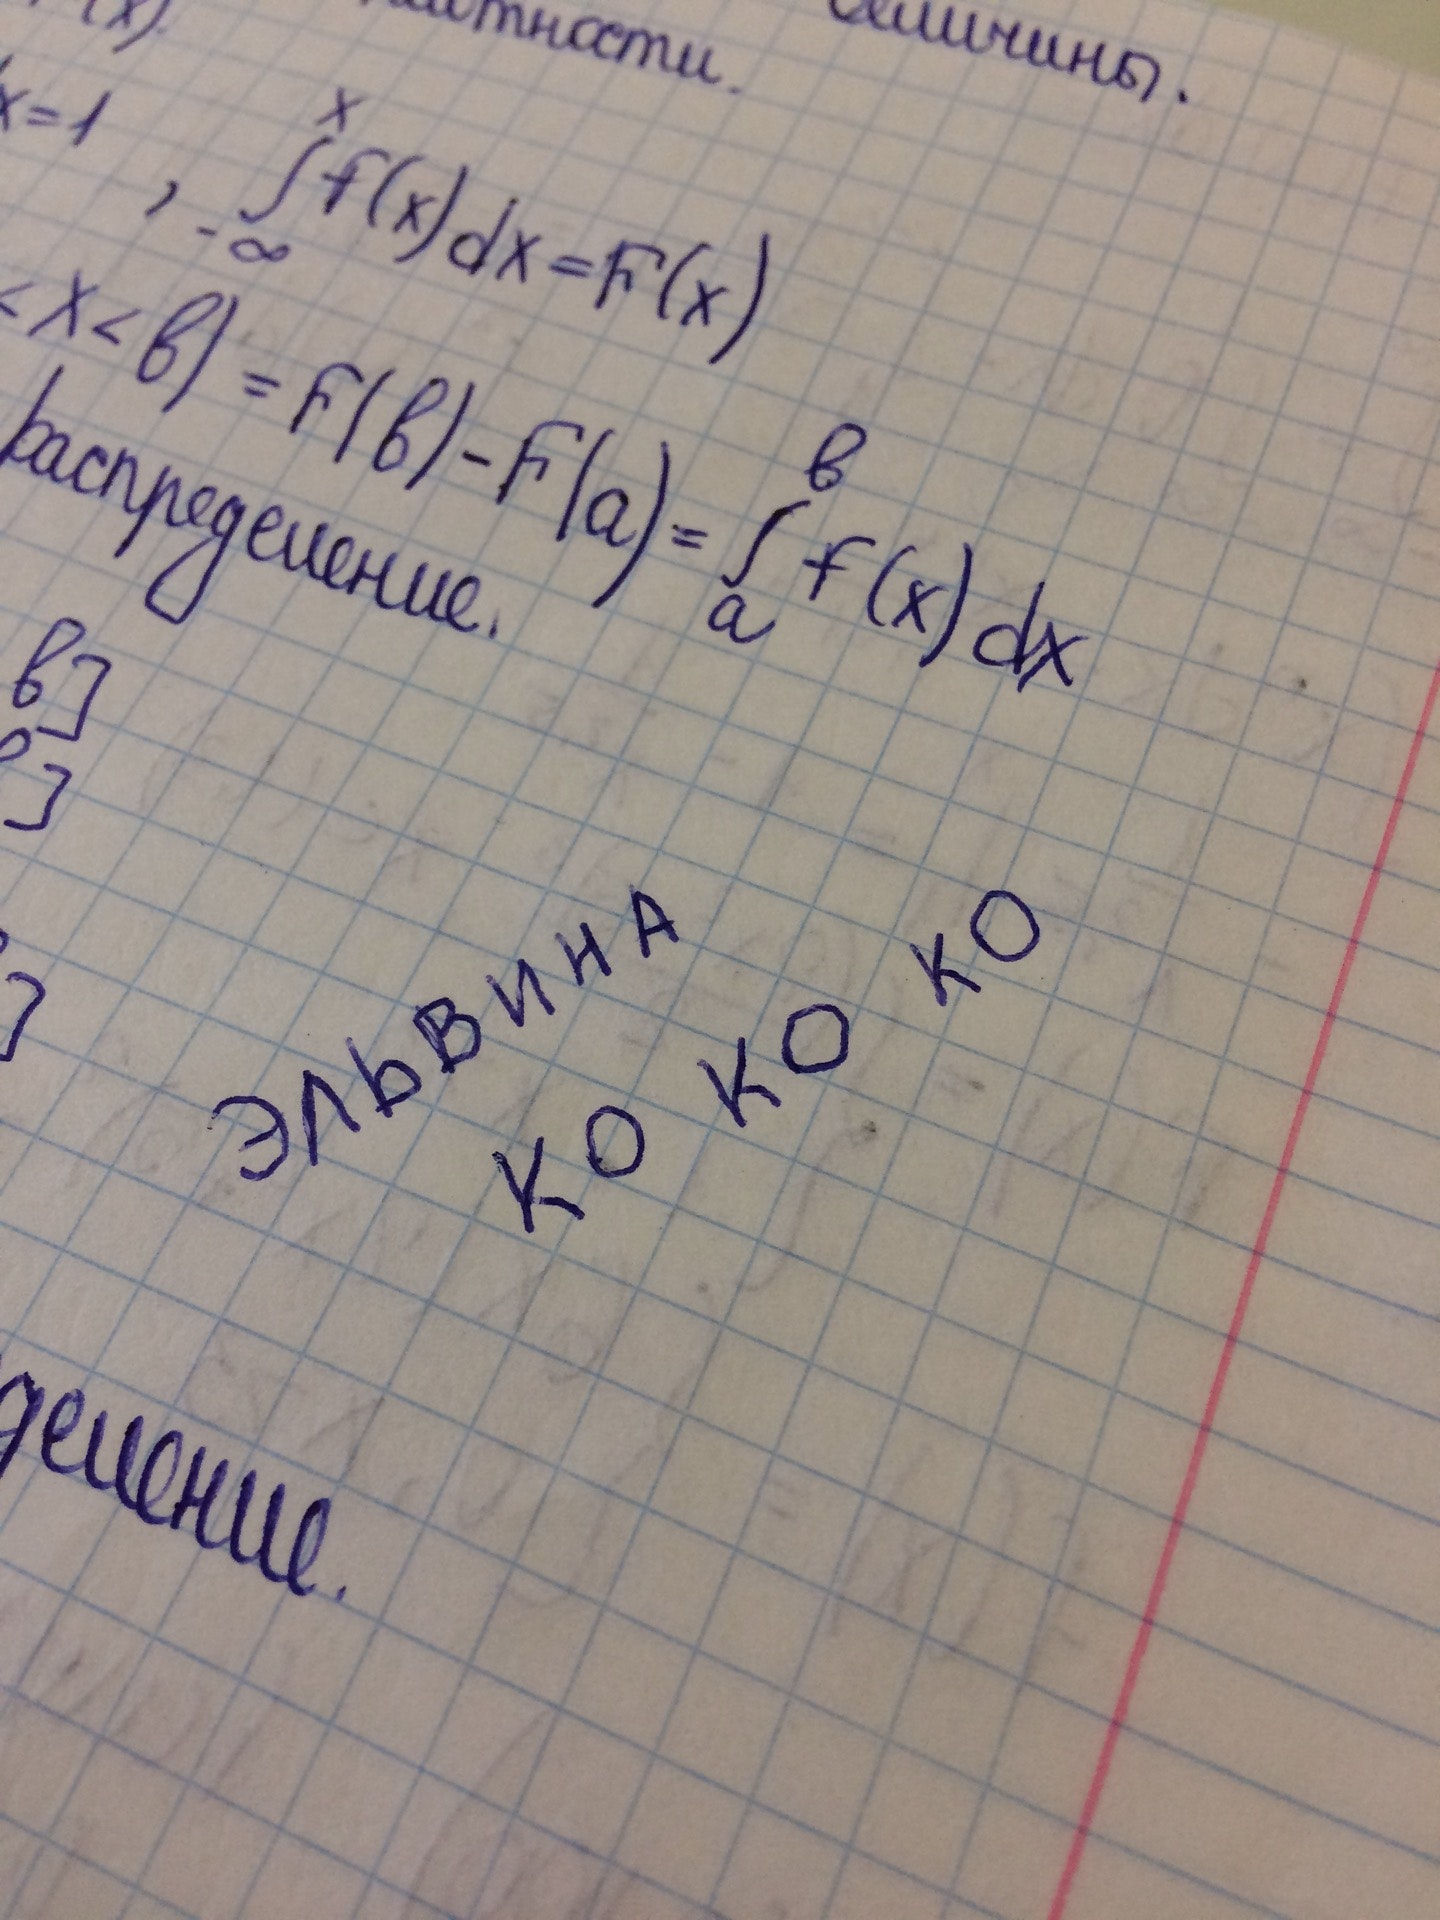 величины.
x=1, ∫_{-∞}^{x} f(x)dx=F(x)
<x<в)=F(в)-F(a)=∫_{a}^{в} f(x)dx
распределение.
в]
]
ЭЛЬВИНА
КО КО КО
]
деление.